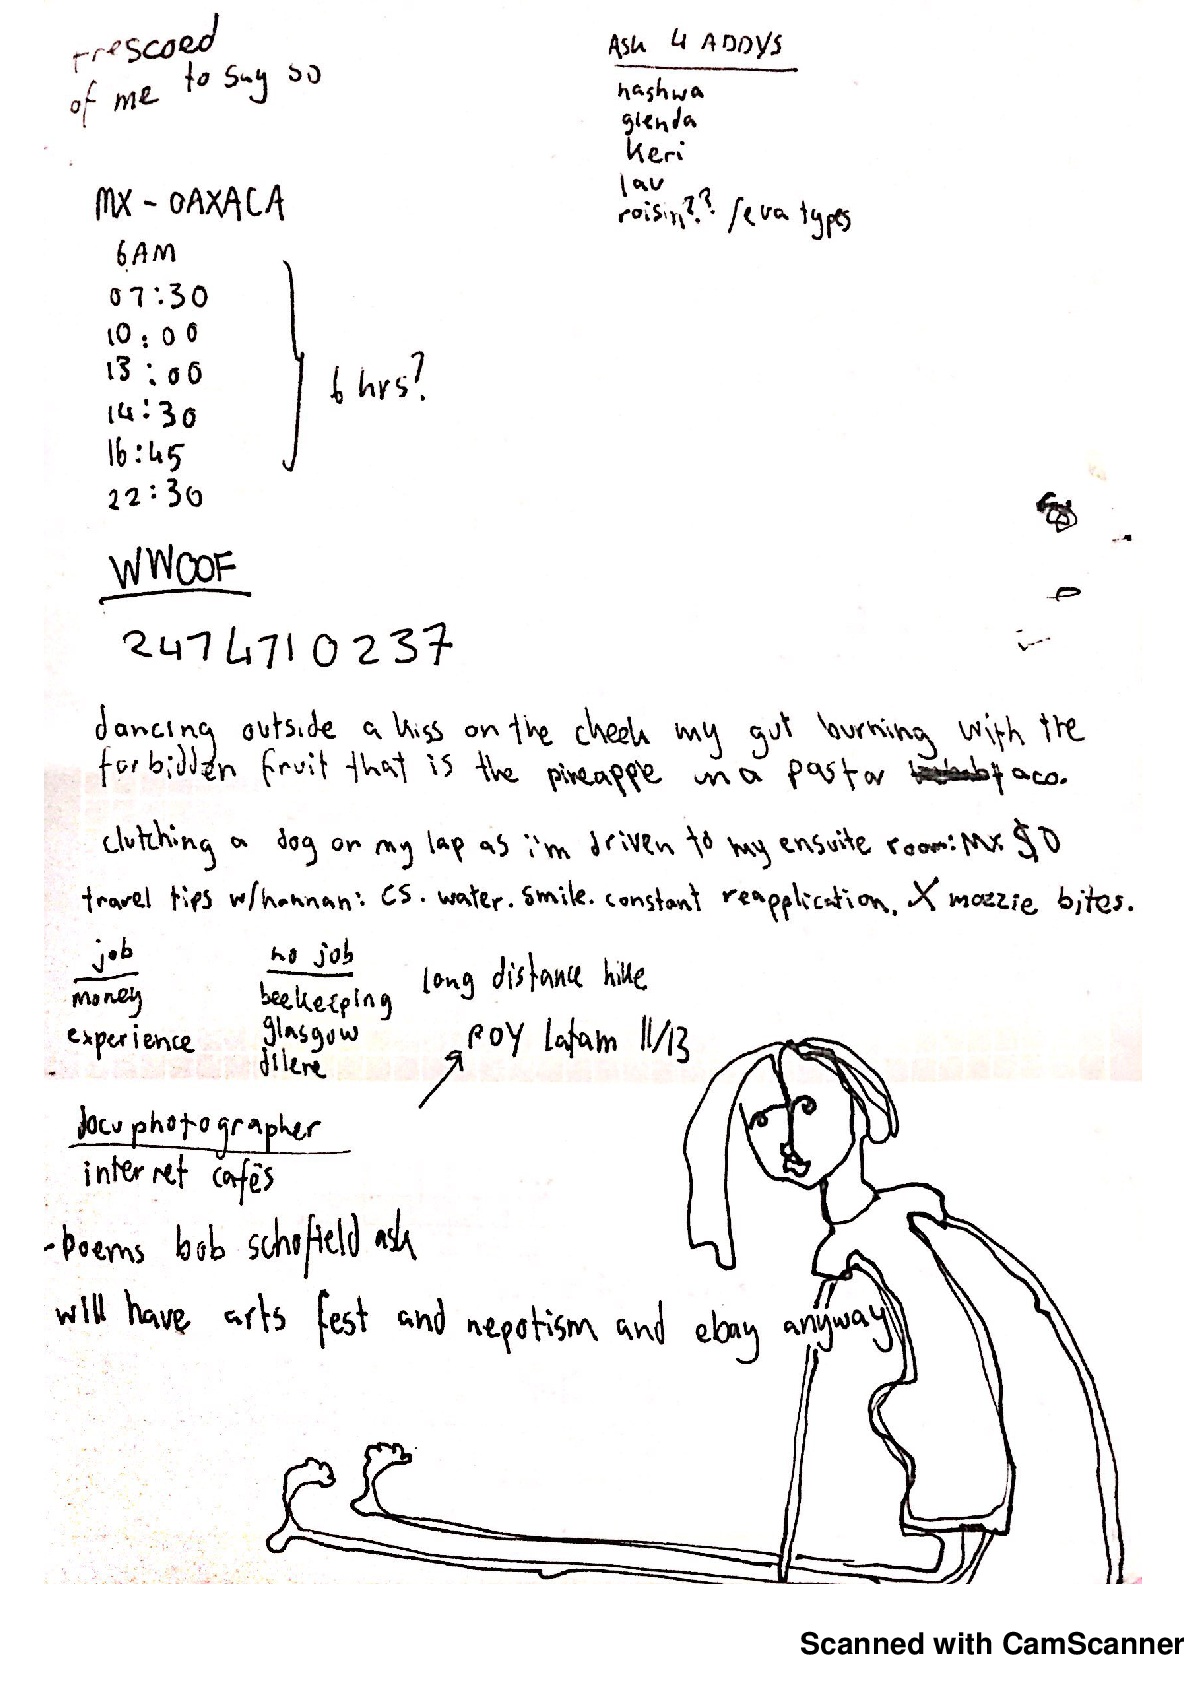 frescoed
of me to say so
Ask 4 ADDYS
nashwa
glenda
keri
lav
roisin?? /eva types
MX - OAXACA
6AM
07:30
10:00
13:00
14:30
16:45
22:30
6 hrs?
WWOOF
2474710237
dancing outside a kiss on the cheek my gut burning with the
forbidden fruit that is the pineapple in a pastor taco.
clutching a dog on my lap as i'm driven to my ensuite room: Mx $0
travel tips w/hannan: CS. water. smile. constant reapplication. X mozzie bites.
job
money
experience
no job
beekeeping
glasgow
dilere
long distance hike
POY latam 11/13
docuphotographer
internet cafés
- poems bob schofield ask
will have arts fest and nepotism and ebay anyway
Scanned with CamScanner